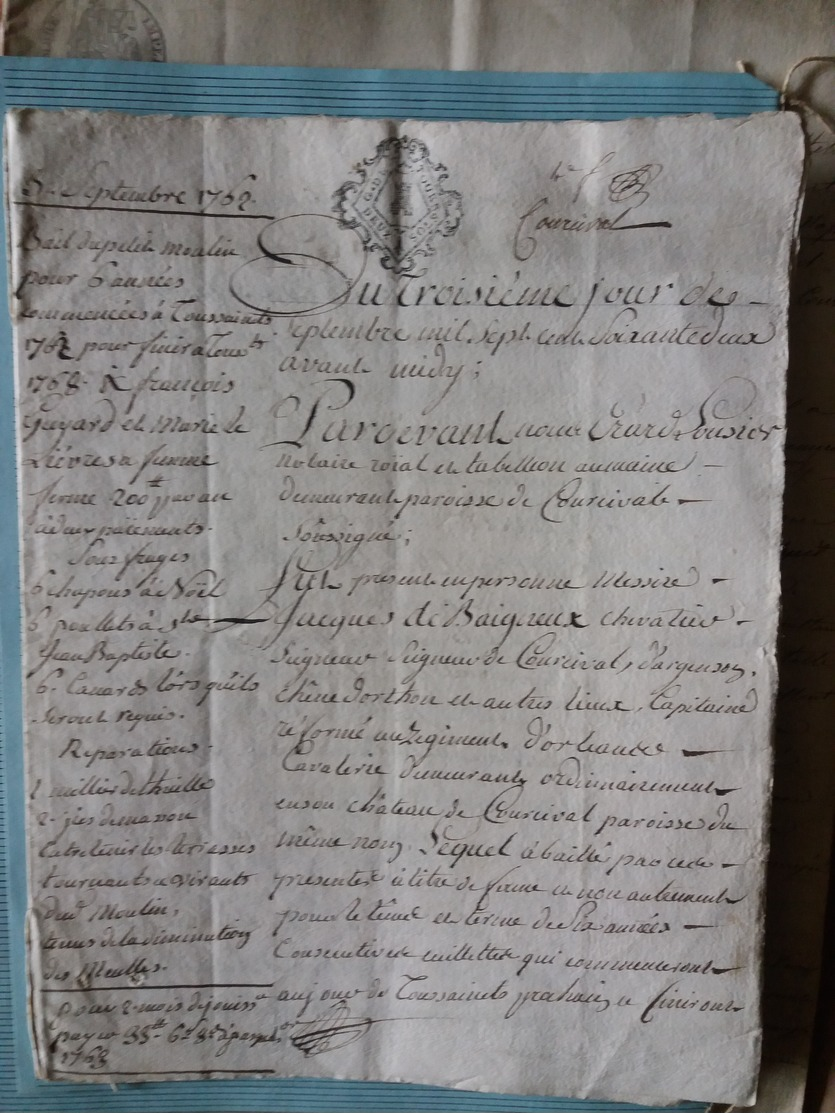 3. Septembre 1762.
Bail du petit moulin
pour 6 années
commencées à Toussaints
1762 pour finir à Touss.ts
1768. À françois
Guyard et Marie le
Lièvre sa femme
ferme 200# par an
à deux paiements.
Souffrages
6 chapons à Noël
6 poullets à St
Jean Baptiste.
6. Canards lorsqu'ils
seront requis.
Reparations.
1 millier de thuille
2. jrs de masson
Entretenir les terrasses
tournants et virants
dud. Moulin,
tenus de la diminution
des Meulles.
pour 2. mois de jouiss.ce
payer 33# 6s 8d à pasques
1763
GD. DE TOURS
DEUX SOLS
Courcival
Du troisième jour de
Septembre mil sept cent soixante deux
avant midy;
Pardevant nous Lousier
notaire roïal et tabellion au maine
demeurant paroisse de Courcival
soussigné;
Fut présent en personne Messire
Jacques de Baigneux chevalier
Seigneur de Courcival, d'argenson,
chêne dorthon et autres lieux, Capitaine
réformé au Regiment d'orleans
Cavalerie demeurant ordinairement
en son château de Courcival paroisse du
même nom, Lequel à baillé par ces
presentes à titre de ferme et non autrement
pour le tems et terme de Six années
Consecutives qui commenceront
au jour de Toussaints prochain et finiront